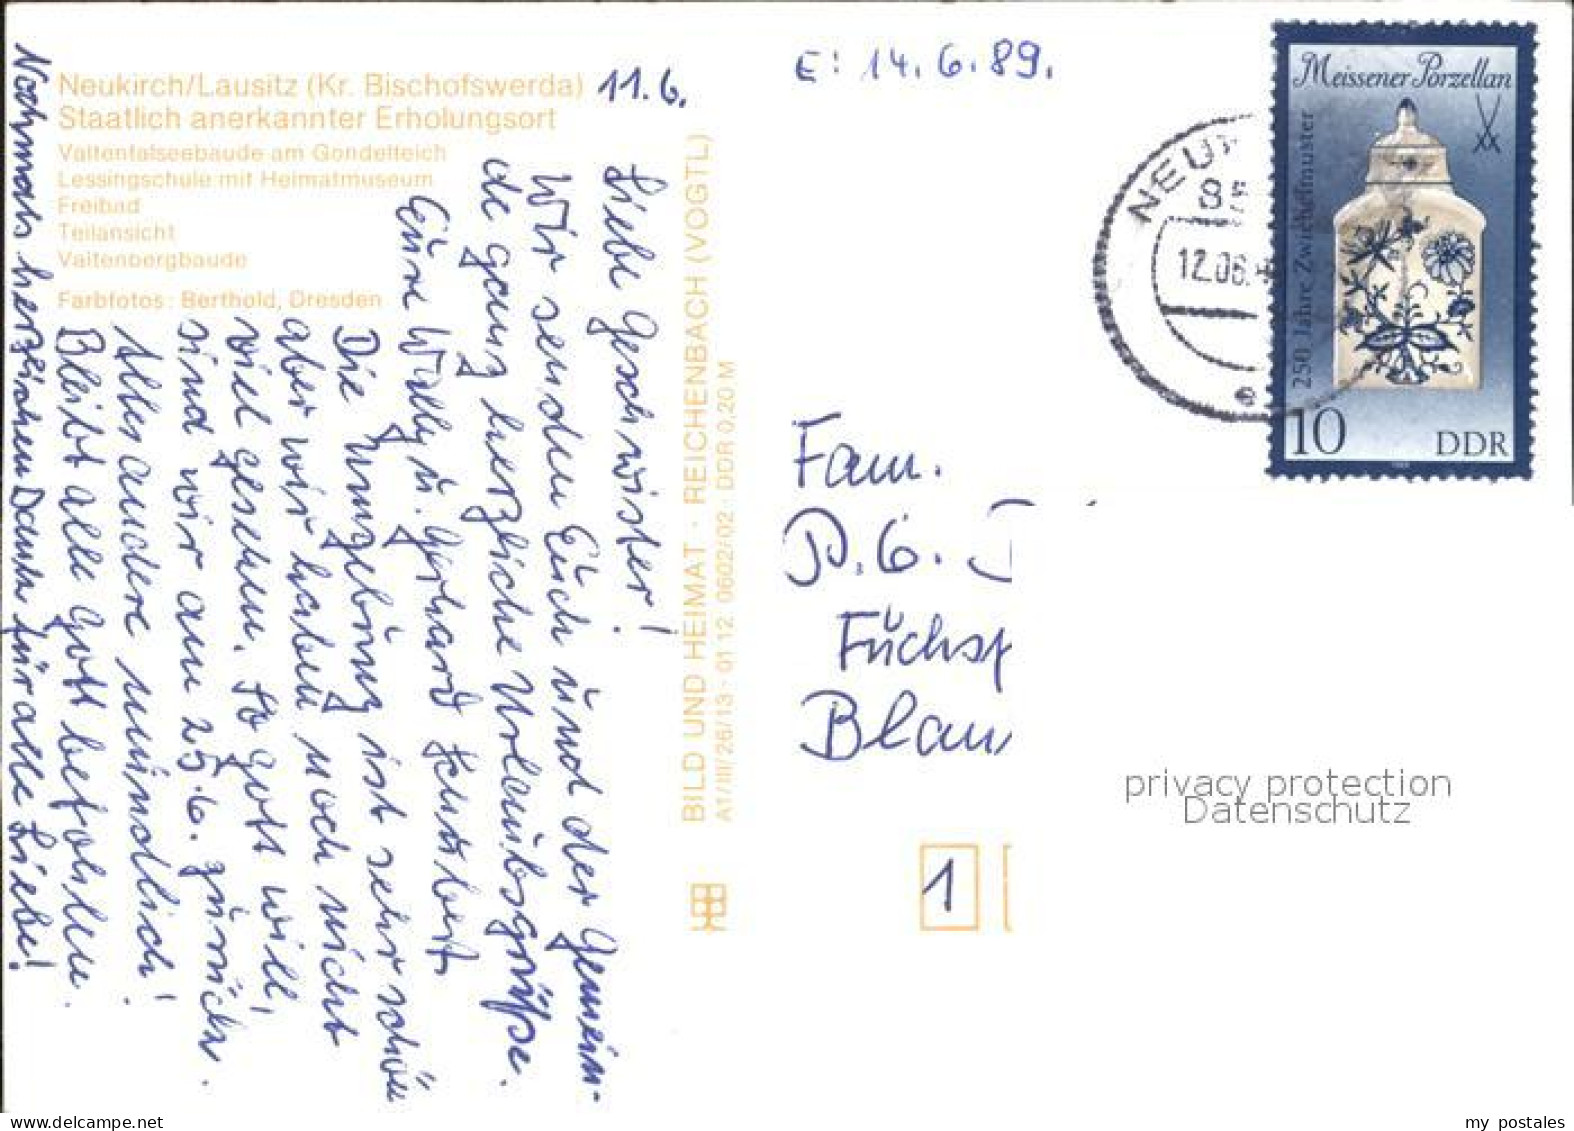 Neukirch/Lausitz (Kr. Bischofswerda)
Staatlich anerkannter Erholungsort
Valtentalseebaude am Gondelteich
Lessingschule mit Heimatmuseum
Freibad
Teilansicht
Valtenbergbaude
Farbfotos: Berthold, Dresden
11.6.
Liebe Geschwister!
Wir senden Euch und der Gemein-
de ganz herzliche Urlaubsgrüße.
Eure Wally u. Gerhard
Die Umgebung ist sehr schön
aber wir haben noch nicht
viel gesehen. So Gott will,
sind wir am 25.6. zurück.
Alles andere mündlich!
Bleibt alle Gott befohlen.
Nochmals herzlichen Dank für alle Liebe!
BILD UND HEIMAT · REICHENBACH (VOGTL)
A1/III/26/13 · 01 12 0602/02 · DDR 0,20 M
E: 14.6.89.
NEU
85
12.06.
Meissener Porzellan
250 Jahre Zwiebelmuster
10 DDR
Fam.
P. G.
Fuchs
Blau
1
privacy protection
Datenschutz
my postales